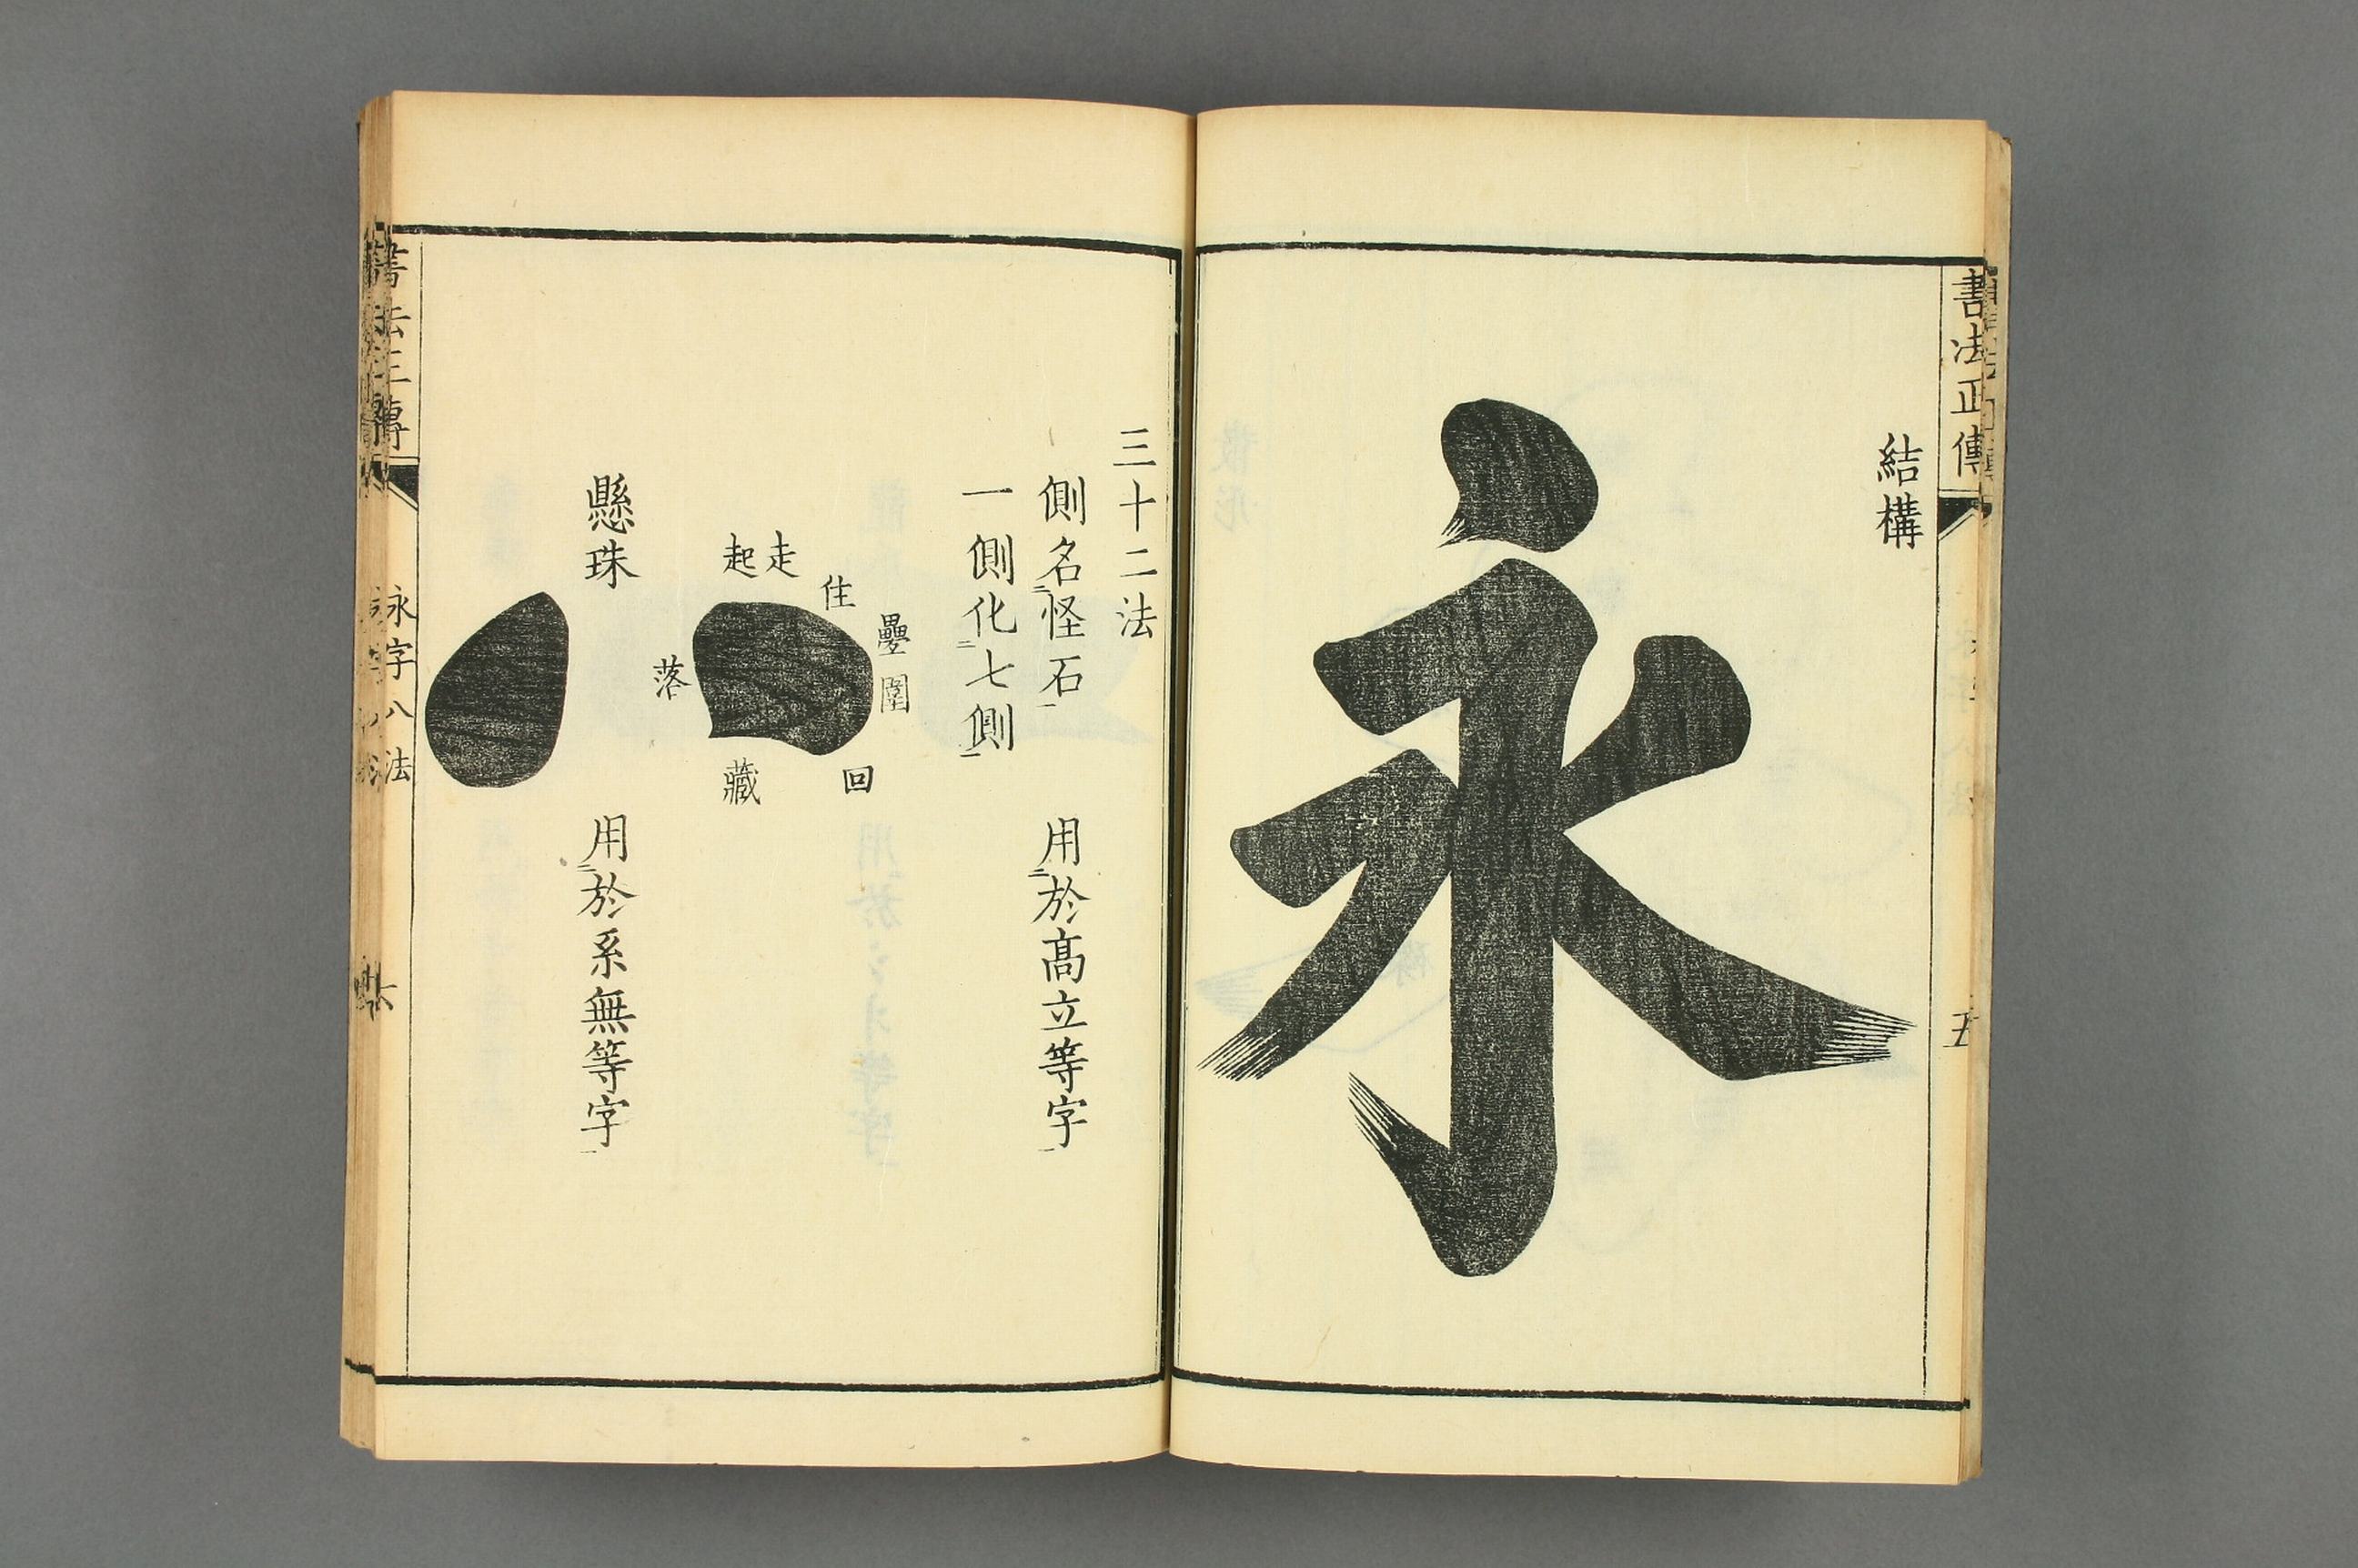 書法正傳
五
結構
永
三十二法
側名怪石
用於高立等字
一側化七側
走
起
住
疊
圍
落
藏
回
懸珠
用於系無等字
書法正傳
永字八法
六